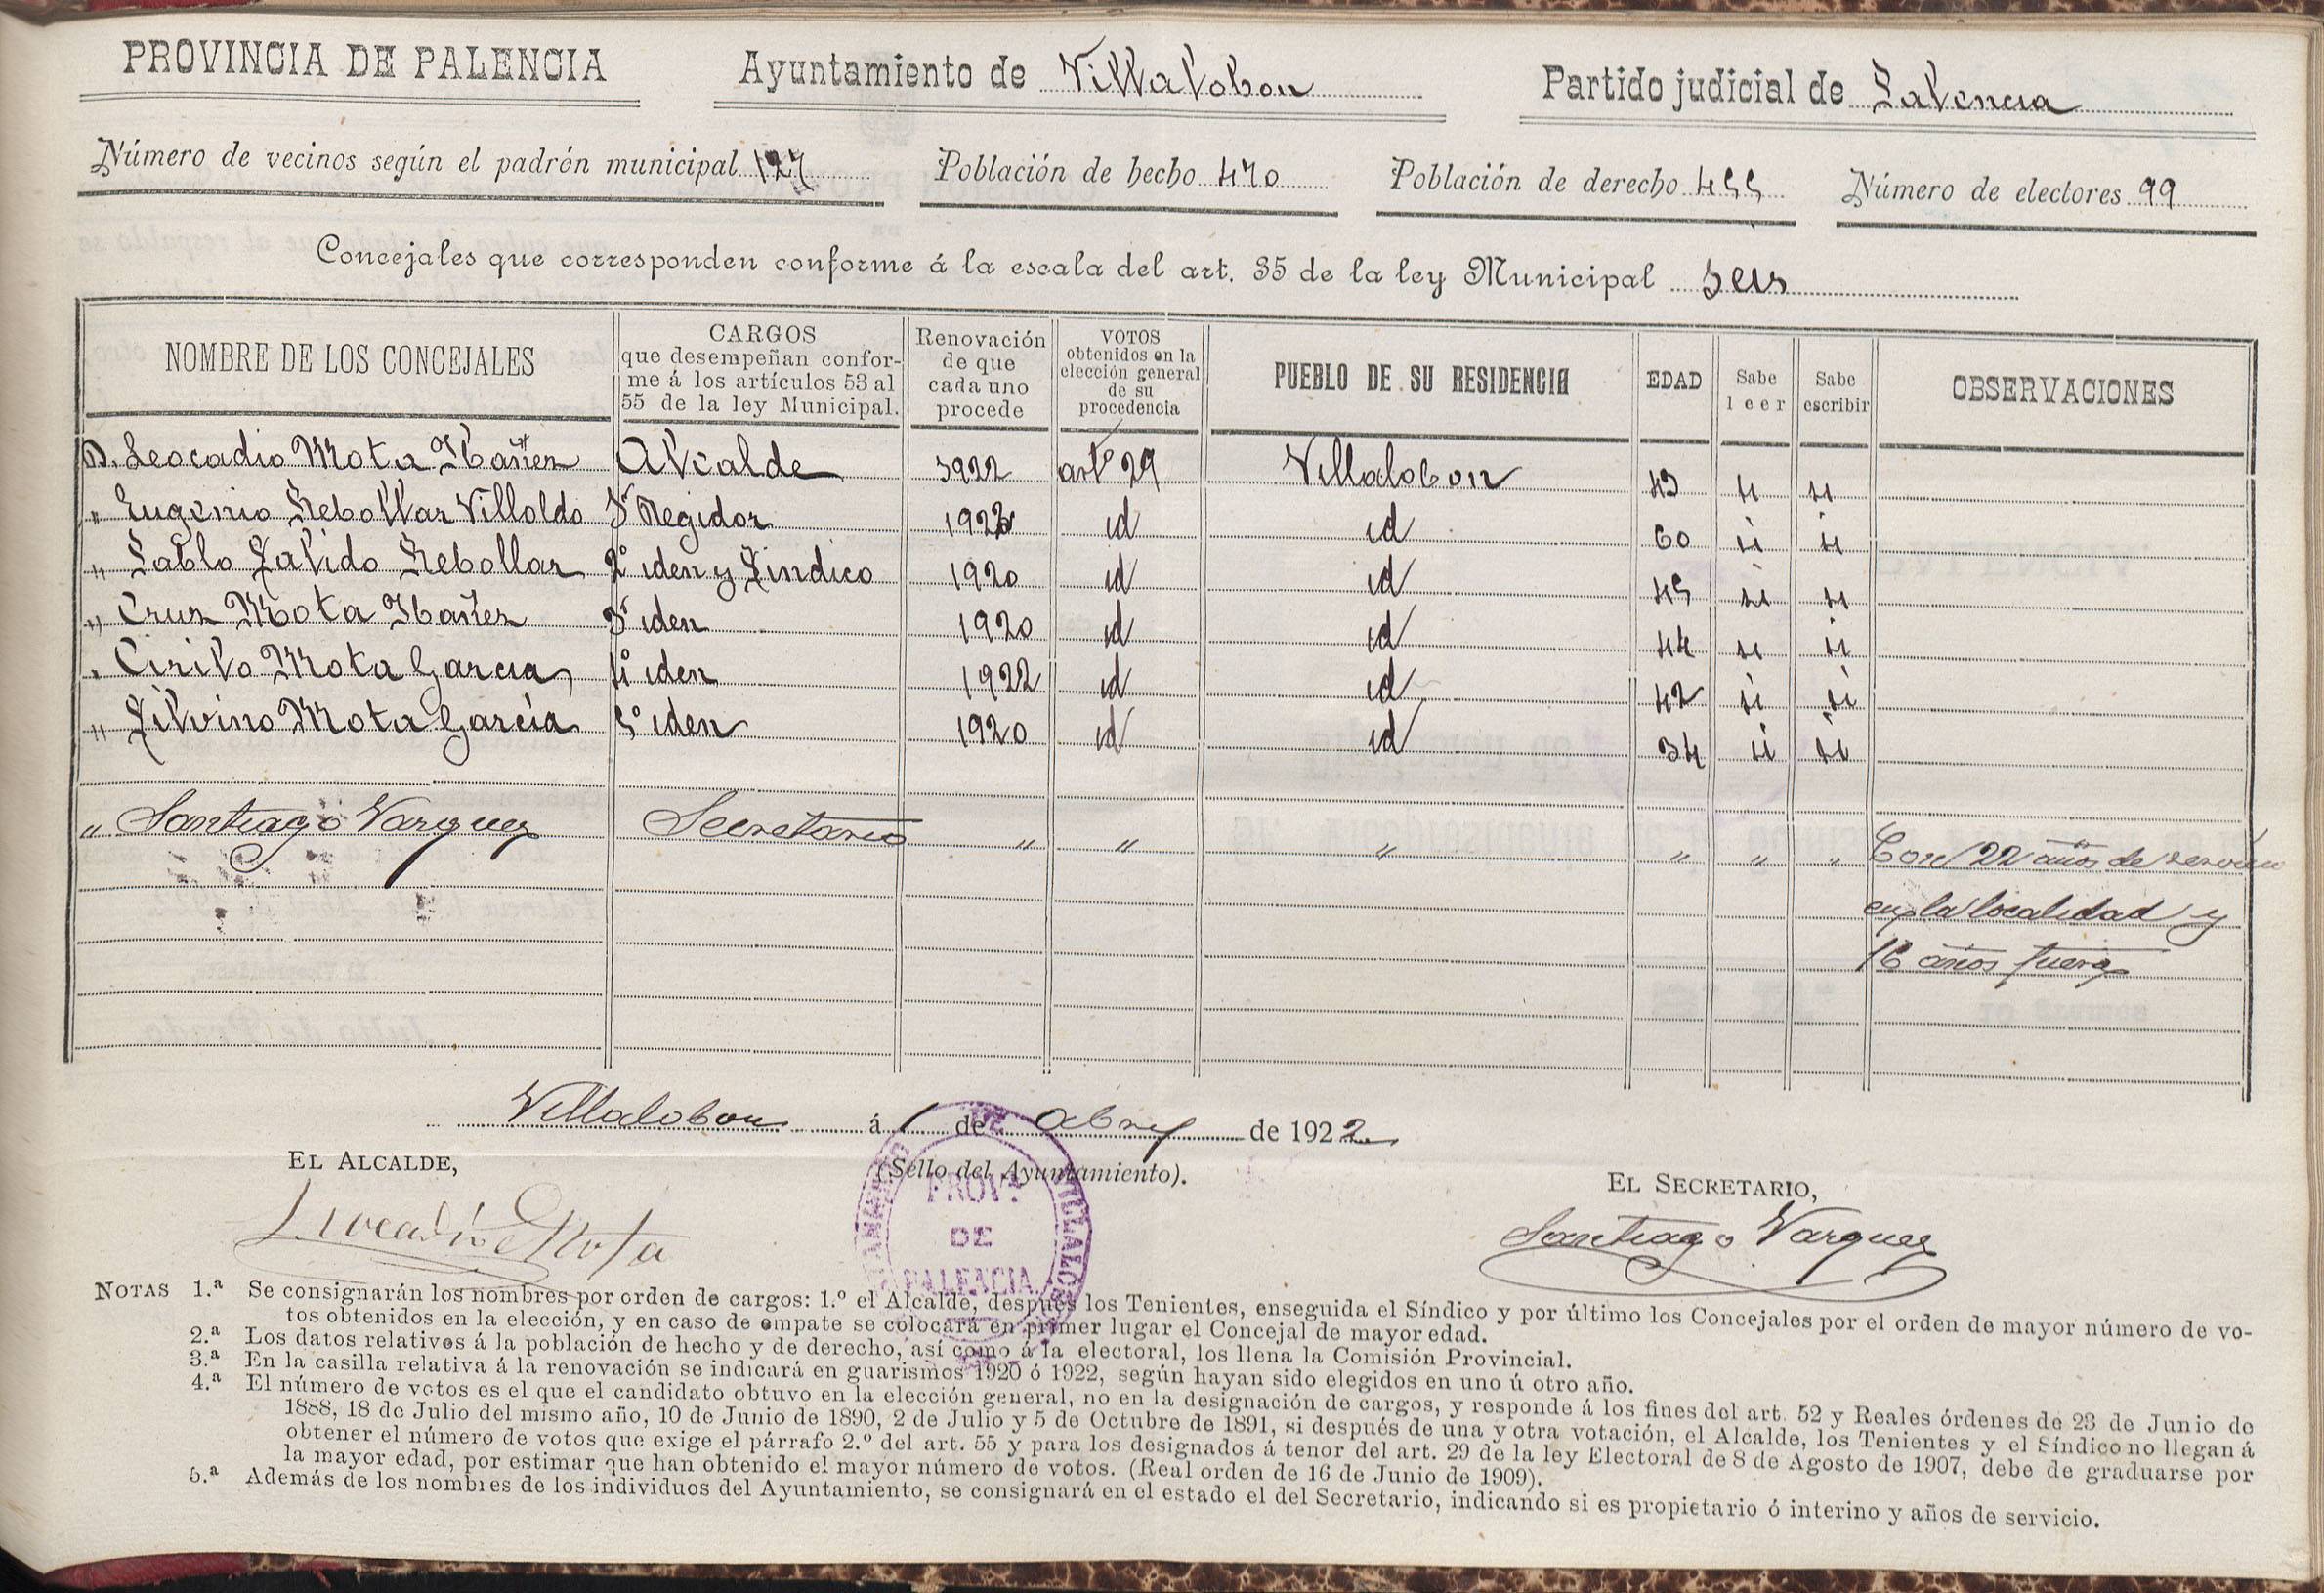 PROVINCIA DE PALENCIA Ayuntamiento de Villalobon Partido judicial de Palencia
Número de vecinos según el padrón municipal 127 Población de hecho 470 Población de derecho 455 Número de electores 99
Concejales que corresponden conforme á la escala del art. 35 de la ley Municipal seis
NOMBRE DE LOS CONCEJALES CARGOS que desempeñan confor- me á los artículos 53 al 55 de la ley Municipal. Renovación de que cada uno procede VOTOS obtenidos en la elección general de su procedencia PUEBLO DE SU RESIDENCIA EDAD Sabe leer Sabe escribir OBSERVACIONES
D. Leocadio Mota Ibañez Alcalde 1922 artº 29 Villalobon 43 si si
" Eugenio Rebollar Villoldo 1º Regidor 1922 id id 60 si si
" Pablo Pulido Rebollar 2º iden y Sindico 1920 id id 45 si si
" Cruz Mota Ibañez 3º iden 1920 id id 44 si si
" Cirilo Mota Garcia 4º iden 1922 id id 42 si si
" Silvino Mota Garcia 5º iden 1920 id id 34 si si
" Santiago Varquez Secretario " " " " " " Con 22 años de servicio
en la localidad y
16 años fuera
Villalobon á 1 de Abril de 1922
EL ALCALDE, (Sello del Ayuntamiento). EL SECRETARIO,
PROVª DE PALENCIA
Leocadio Mota Santiago Varquez
NOTAS 1.ª Se consignarán los nombres por orden de cargos: 1.º el Alcalde, después los Tenientes, enseguida el Síndico y por último los Concejales por el orden de mayor número de vo-
tos obtenidos en la elección, y en caso de empate se colocará en primer lugar el Concejal de mayor edad.
2.ª Los datos relativos á la población de hecho y de derecho, así como á la electoral, los llena la Comisión Provincial.
3.ª En la casilla relativa á la renovación se indicará en guarismos 1920 ó 1922, según hayan sido elegidos en uno ú otro año.
4.ª El número de votos es el que el candidato obtuvo en la elección general, no en la designación de cargos, y responde á los fines del art. 52 y Reales órdenes de 23 de Junio de
1888, 18 de Julio del mismo año, 10 de Junio de 1890, 2 de Julio y 5 de Octubre de 1891, si después de una y otra votación, el Alcalde, los Tenientes y el Síndico no llegan á
obtener el número de votos que exige el párrafo 2.º del art. 55 y para los designados á tenor del art. 29 de la ley Electoral de 8 de Agosto de 1907, debe de graduarse por
la mayor edad, por estimar que han obtenido el mayor número de votos. (Real orden de 16 de Junio de 1909).
5.ª Además de los nombres de los individuos del Ayuntamiento, se consignará en el estado el del Secretario, indicando si es propietario ó interino y años de servicio.